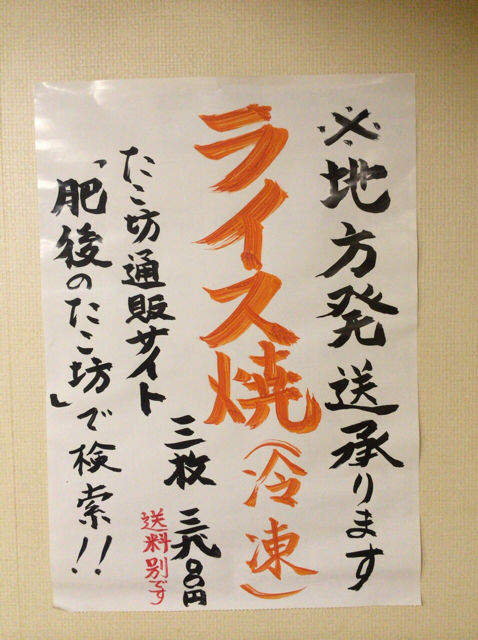 ※地方発送承ります
ライス焼(冷凍)
三枚 三八〇〇円
送料別です
たこ坊通販サイト
「肥後のたこ坊」で検索!!